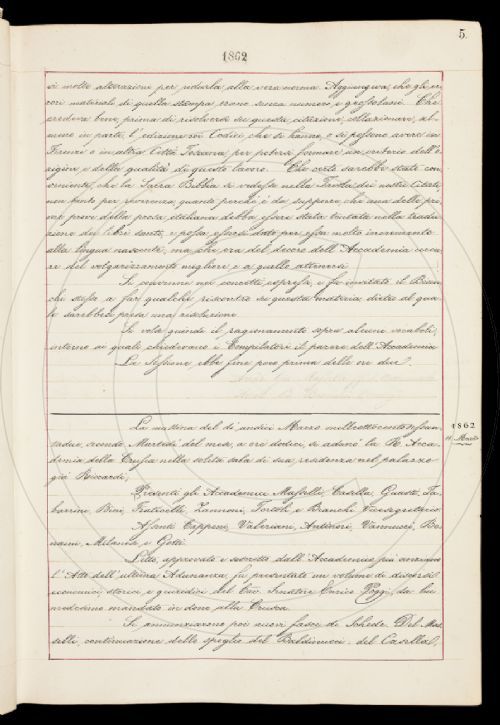 5.
1862
si molte alterazioni per ridurla alla vera norma. Aggiungeva, che gli er=
rori materiali di quella stampa erano senza numero, e grossolani. Che
credeva bene prima di risolversi su questa citazione, collazionare, al=
meno in parte, l'edizione coi Codici che si hanno, o si possono avere in
Firenze o in altra Città Toscana, per potersi formare un criterio dell'o=
rigine, e della qualità di questo lavoro. Che certo sarebbe stato con=
veniente, che la Sacra Bibbia si vedesse nella Tavola dei nostri Citati,
non tanto per riverenza, quanto perché è da supporre, che una delle pri=
me prove della prosa italiana debba essere stata tentata nella tradu=
zione dei libri santi, e possa essersi dato per essa molto incremento
alla lingua nascente; ma che era del decoro dell'Accademia cerca=
re del volgarizzamento migliore, e a quello attenersi.
Si convenne nei concetti espressi, e fu invitato il Bian=
chi stesso a far qualche riscontro su questa materia, dietro al qua=
le sarebbesi presa una risoluzione.
Si volse quindi il ragionamento sopra alcuni vocaboli,
intorno ai quali chiedevano i Compilatori il parere dell'Accademia
La Sessione ebbe fine poco prima delle ore due.
1862
11 Marzo
La mattina del dì undici Marzo milleottocentosessan=
tadue, secondo Martedì del mese, a ore dodici, si adunò la R. Acca=
demia della Crusca nella solita sala di sua residenza nel palazzo
già Riccardi.
Presenti gli Accademici Masselli, Casella, Guasti, Ta=
barrini, Bini, Fraticelli, Zannoni, Tortoli e Bianchi Vicesegretario.
Assenti Capponi, Valeriani, Antinori, Vannucci, Bo=
naini, Milanesi e Gotti.
Letto, approvato e soscritto dall'Accademico più anziano
l'Atto dell'ultima Adunanza, fu presentato un volume di discorsi
economici, storici e giuridici del Cav. Senatore Enrico Poggi, da lui
medesimo mandato in dono alla Crusca.
Si annunziarono poi nuovi fasci di Schede. Del Mas=
selli, continuazione dello spoglio del Baldinucci: del Casella,